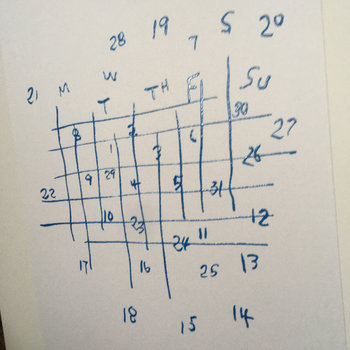 28 19 7 S 20
21 M W TH F SU
T
8 2 30
1 3 6 27
9 29 4 5 31 26
22
10 23 11 12
24
17 16 25 13
18 15 14